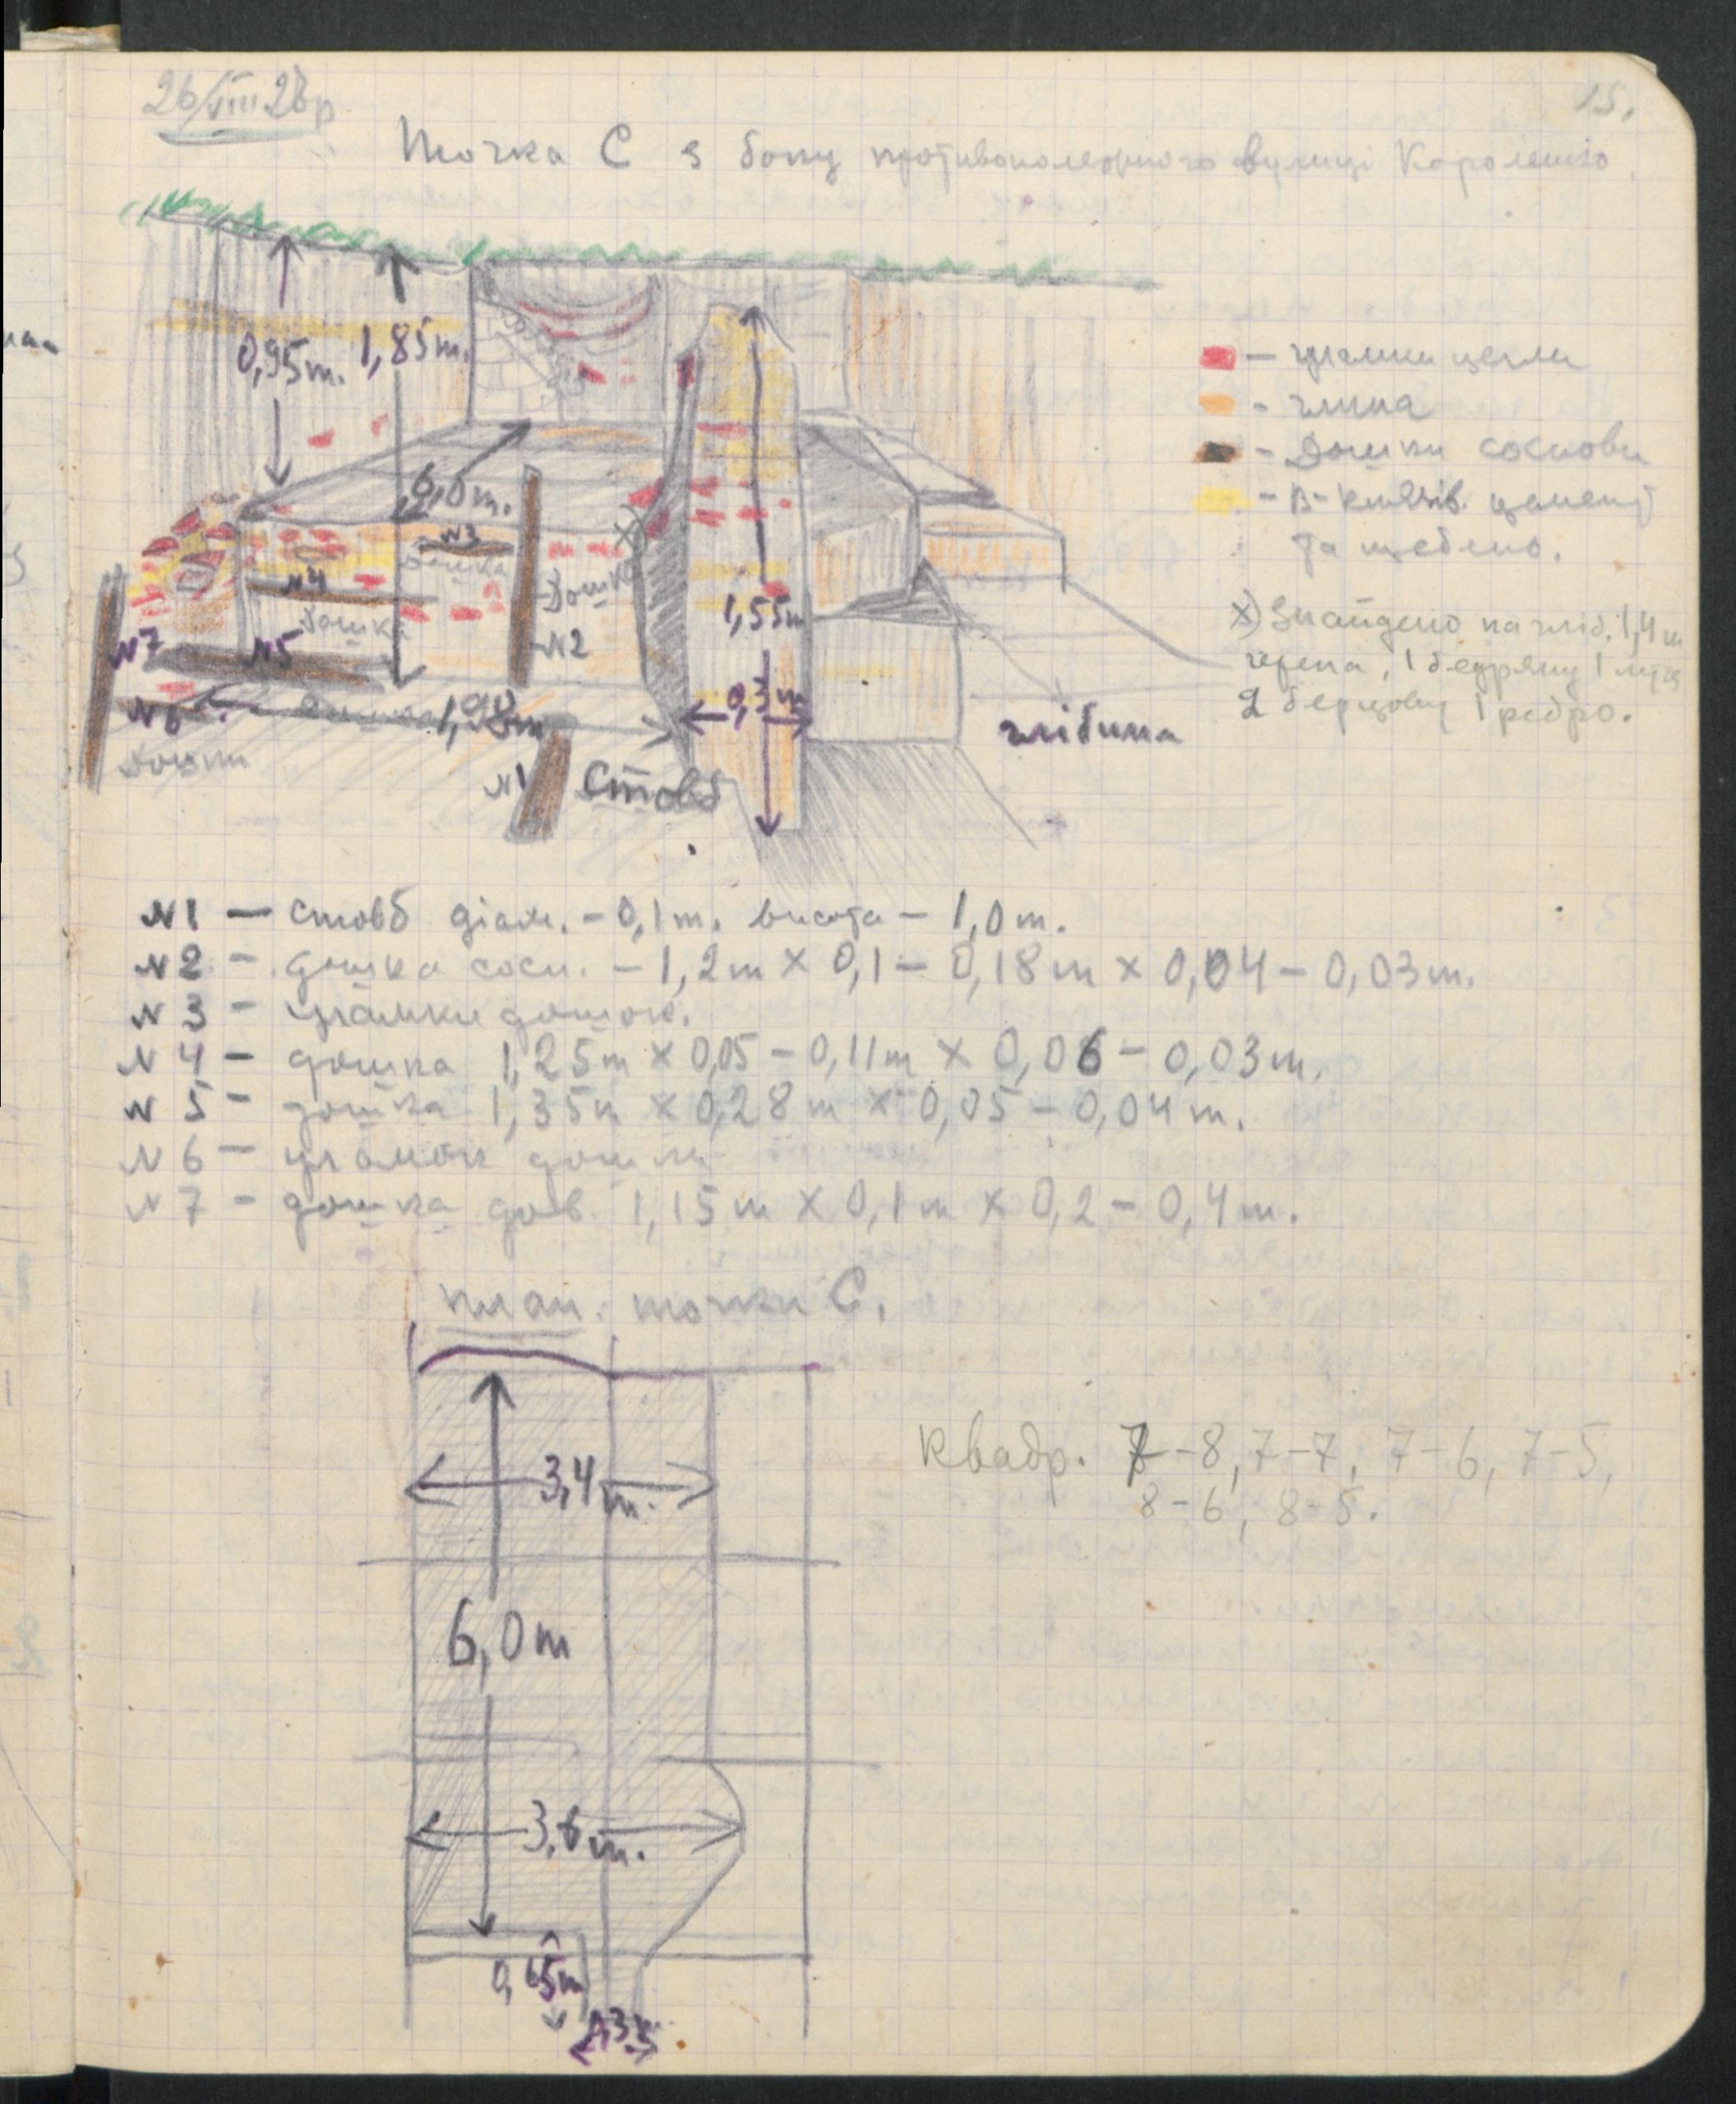 26/VIII 28р
15.
Точка С з боку протилежного вулиці Короленко.
0,95m. 1,85m.
6,0m.
N3
дошка
N4
дошка
дошка
N2
x)
N7
N5
N6
1,98m
дошки
N1
Стовб
1,55m
0,3m
глібина
— уламки цегли
- глина
- Дошки соснові
- цемент
та щебень.
x) Знайдено на гліб. 1,4m
черепа, 1 бедряну 1
2 берцову 1 ребро.
N1 — стовб діам. - 0,1m. висота - 1,0m.
N2 - дошка сосн. - 1,2m × 0,1 - 0,18m × 0,04 - 0,03m.
N3 - уламки дошок.
N4 - дошка 1,25m × 0,05 - 0,11m × 0,06 - 0,03m.
N5 - дошка 1,35m × 0,28m × 0,05 - 0,04m.
N6 - уламок дошки
N7 - дошка дов. 1,15m × 0,1m × 0,2 - 0,4m.
план. точки С.
3,4m.
6,0m
3,6m.
0,65m
Квадр. 7-8, 7-7, 7-6, 7-5,
8-6, 8-5.